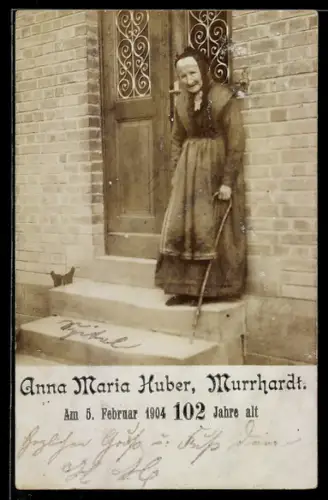 Spital
Anna Maria Huber, Murrhardt.
Am 5. Februar 1904 102 Jahre alt
Herzlichen Gruß u. Kuß Dein